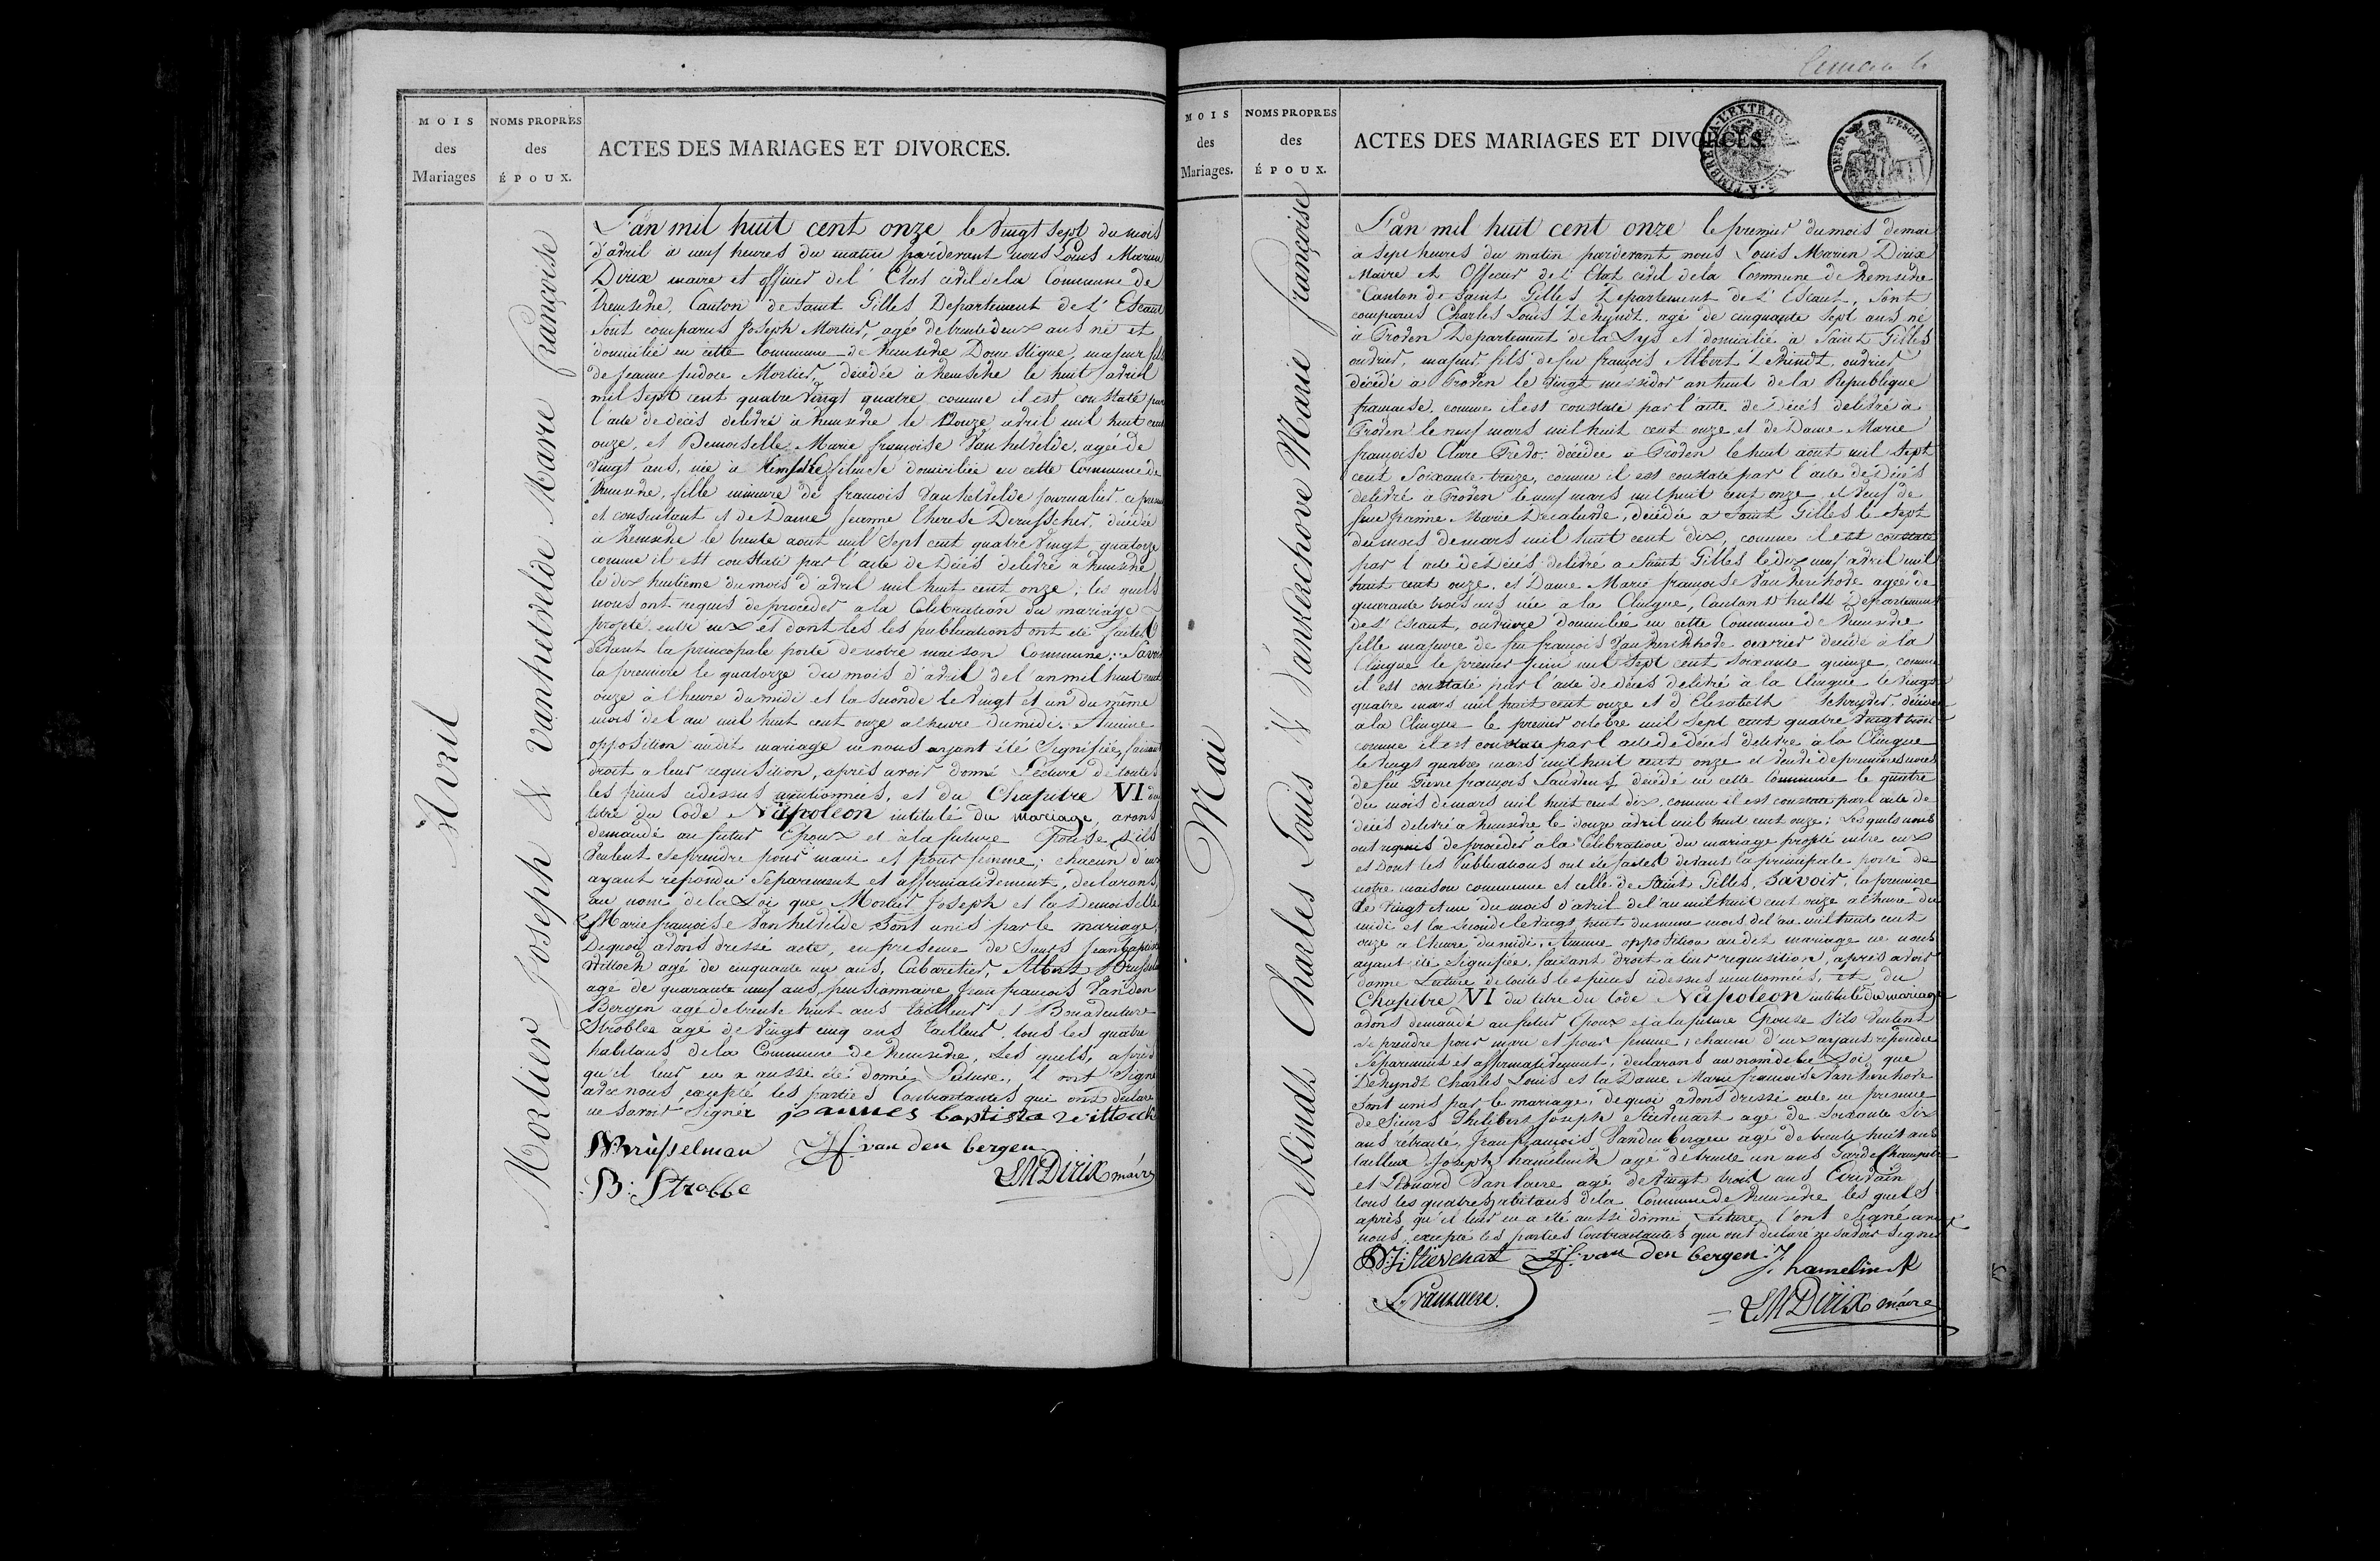 MOIS
des
Mariages
NOMS PROPRES
des
ÉPOUX.
ACTES DES MARIAGES ET DIVORCES.
Avril
Mortier Joseph & Vanhetvelde Marie françoise
L'an mil huit cent onze le Vingt Sept du mois
d'avril à neuf heures du matin pardevant nous Louis Marien
Dirix maire et officier del' Etat civil dela Commune de
Kemseke, Canton de Saint Gilles Departement de l' Escaut
sont comparus Joseph Mortier, agé de trente deux ans né et
domicilié en cette Commune de Kemseke Domestique, majeur fils
de Jeanne Judoce Mortier, décédée à Kemseke le huit avril
mil Sept cent quatre Vingt quatre comme il est constaté par
l'acte de décès delivré à Kemseke le Douze avril mil huit cent
onze, et Demoiselle Marie françoise Vanhetvelde, agée de
Vingt ans, née à domiciliée en cette Commune de
Kemseke, fille mineure de francois Vanhetvelde journalier ce present
et consentant et de Dame Jeanne Therese Derusscher, décédée
à Kemseke le trente aout mil Sept cent quatre Vingt quatorze
comme il est constaté par l'acte de Décès delivré a Kemseke
le dix huitieme du mois d'avril mil huit cent onze; les quels
nous ont requis de procéder a la Celebration du mariage
projeté entre eux et dont les les publications ont été faites
devant la principale porte de notre maison Commune; Savoir
la premiere le quatorze du mois d'avril del'an mil huit cent
onze à l'heure du midi et la Seconde le Vingt et un du même
mois del'an mil huit cent onze a l'heure du midi. Aucune
opposition audit mariage ne nous ayant été Signifiée, faisant
droit a leur requisition, après avoir donné Lecture de toutes
les pieces cidessus mentionnées, et du Chapitre VI du
titre du Code Napoleon intitulé du mariage, avons
demandé au futur Epoux et à la future Epouse s'ils
Veulent Seprendre pour mari et pour femme; chacun d'eux
ayant répondu Séparement et affirmativement, declarons
au nom dela Loi que Mortier Joseph et la Demoiselle
Marie françoise Vanhetvelde Sont unis par le mariage,
Dequoi avons dressé acte, en presence de Sieurs Jean Baptiste
Wittock agé de cinquante un ans, Cabaretier, Albert Brusselman
agé de quarante neuf ans pensionnaire Jean francois Vanden
Bergen agé de trente huit ans tailleur et Bonaventure
Strobbe agé de Vingt cinq ans tailleur tous les quatre
habitans dela Commune de Kemseke, Les quels, après
qu'il leur en a aussi été donné Lecture, l'ont Signé
avec nous, excepté les parties Contractantes qui ont declaré
ne savoir Signer joannes baptista wittock
Brusselman Jf: van den bergen
B: Strobbe LMDirix maire
MOIS
des
Mariages.
NOMS PROPRES
des
ÉPOUX.
ACTES DES MARIAGES ET DIVORCES.
TIMBRE A L'EXTRAORD
DEP. DE L'ESCAUT
Mai
DeKindt Charles Louis & Vankerckhove Marie françoise
L'an mil huit cent onze le premier du mois de mai
a sept heures du matin pardevant nous Louis Marien Dirix
Maire et Officier del' Etat civil dela Commune de Kemseke
Canton de Saint Gilles Departement de l' Escaut, Sont
comparus Charles Louis Dekyndt agé de cinquante Sept ans né
à Proven Departement dela Lys et domicilié à Saint Gilles
ouvrier, majeur, fils de feu françois Albert Dekindt, ouvrier
décédé a Proven le Vingt messidor an huit dela Republique
française, comme il est constaté par l'acte de Décès delivré à
Proven le neuf mars mil huit cent onze et de Dame Marie
françoise Clare Predo. décédée a Proven le huit aout mil Sept
cent Soixante treize, comme il est constaté par l'acte de Décès
delivré à Proven le neuf mars mil huit cent onze, et veuf de
feue Jeanne Marie Decaluwe, décédée a Saint Gilles le Sept
du mois de mars mil huit cent dix, comme il est constaté
par l'acte de Décès delivré a Saint Gilles le dix neuf avril mil
huit cent onze. et Dame Marie françoise Vankerckhove agée de
quarante trois ans née a la Clingue, Canton D'hulst Departement
de l' Escaut, ouvriere domiciliée en cette Commune de Kemseke
fille majeure de feu françois Vankerckhove ouvrier décédé à la
Clingue le premier juin mil Sept cent Soixante quinze, comme
il est constaté par l'acte de décès delivré à la Clingue le Vingt
quatre mars mil huit cent onze et d'Elisabeth Schryder, décédée
a la Clingue le premier octobre mil Sept cent quatre Vingt trois
comme il est constaté par l'acte de décès delivré à la Clingue
le Vingt quatre mars mil huit cent onze et veuve de premieres noces
de feu Pierre françois décédé en cette Commune le quatre
du mois de mars mil huit cent dix, comme il est constaté par l'acte de
décès delivré a Kemseke le douze avril mil huit cent onze; Lesquels nous
ont requis de procéder a la Celebration du mariage projeté entre eux
et Dont les Publications ont été faites devant la principale porte de
notre maison commune et celle de Saint Gilles, Savoir, la premiere
le Vingt et un du mois d'avril del'an mil huit cent onze a l'heure du
midi et la Seconde le Vingt huit du meme mois del'an mil huit cent
onze a l'heure du midi, Aucune opposition audit mariage ne nous
ayant été Signifiée, faisant droit à leur requisition, après avoir
donné Lecture de toutes les pieces cidessus mentionnées, et du
Chapitre VI du titre du Code Napoleon intitulé du mariage
avons demandé au futur Epoux et a la future Epouse s'ils Veulent
se prendre pour mari et pour femme; chacun d'eux ayant répondu
Séparement et affirmativement, declarons au nom de la Loi, que
Dekyndt Charles Louis et la Dame Marie francoise Vankerckhove
Sont unis par le mariage, dequoi avons dressé acte en presence
de Sieurs Philibert Joseph Stiévenart agé de Soixante Six
ans retraité, Jean françois Vanden bergen agé de trente huit ans
tailleur Joseph hamelinck agé de trente un ans Garde Champetre
et Léonard Vanlaere agé de Vingt trois ans Ecrivain
tous les quatre habitans dela Commune de Kemseke les quels
après qu'il leur en a été aussi donné Lecture, l'ont Signé avec
nous, excepté les parties Contractantes qui ont declaré ne savoir Signer
Jf: van den bergen J. hamelinck
L. Vanlaere.
LMDirix maire